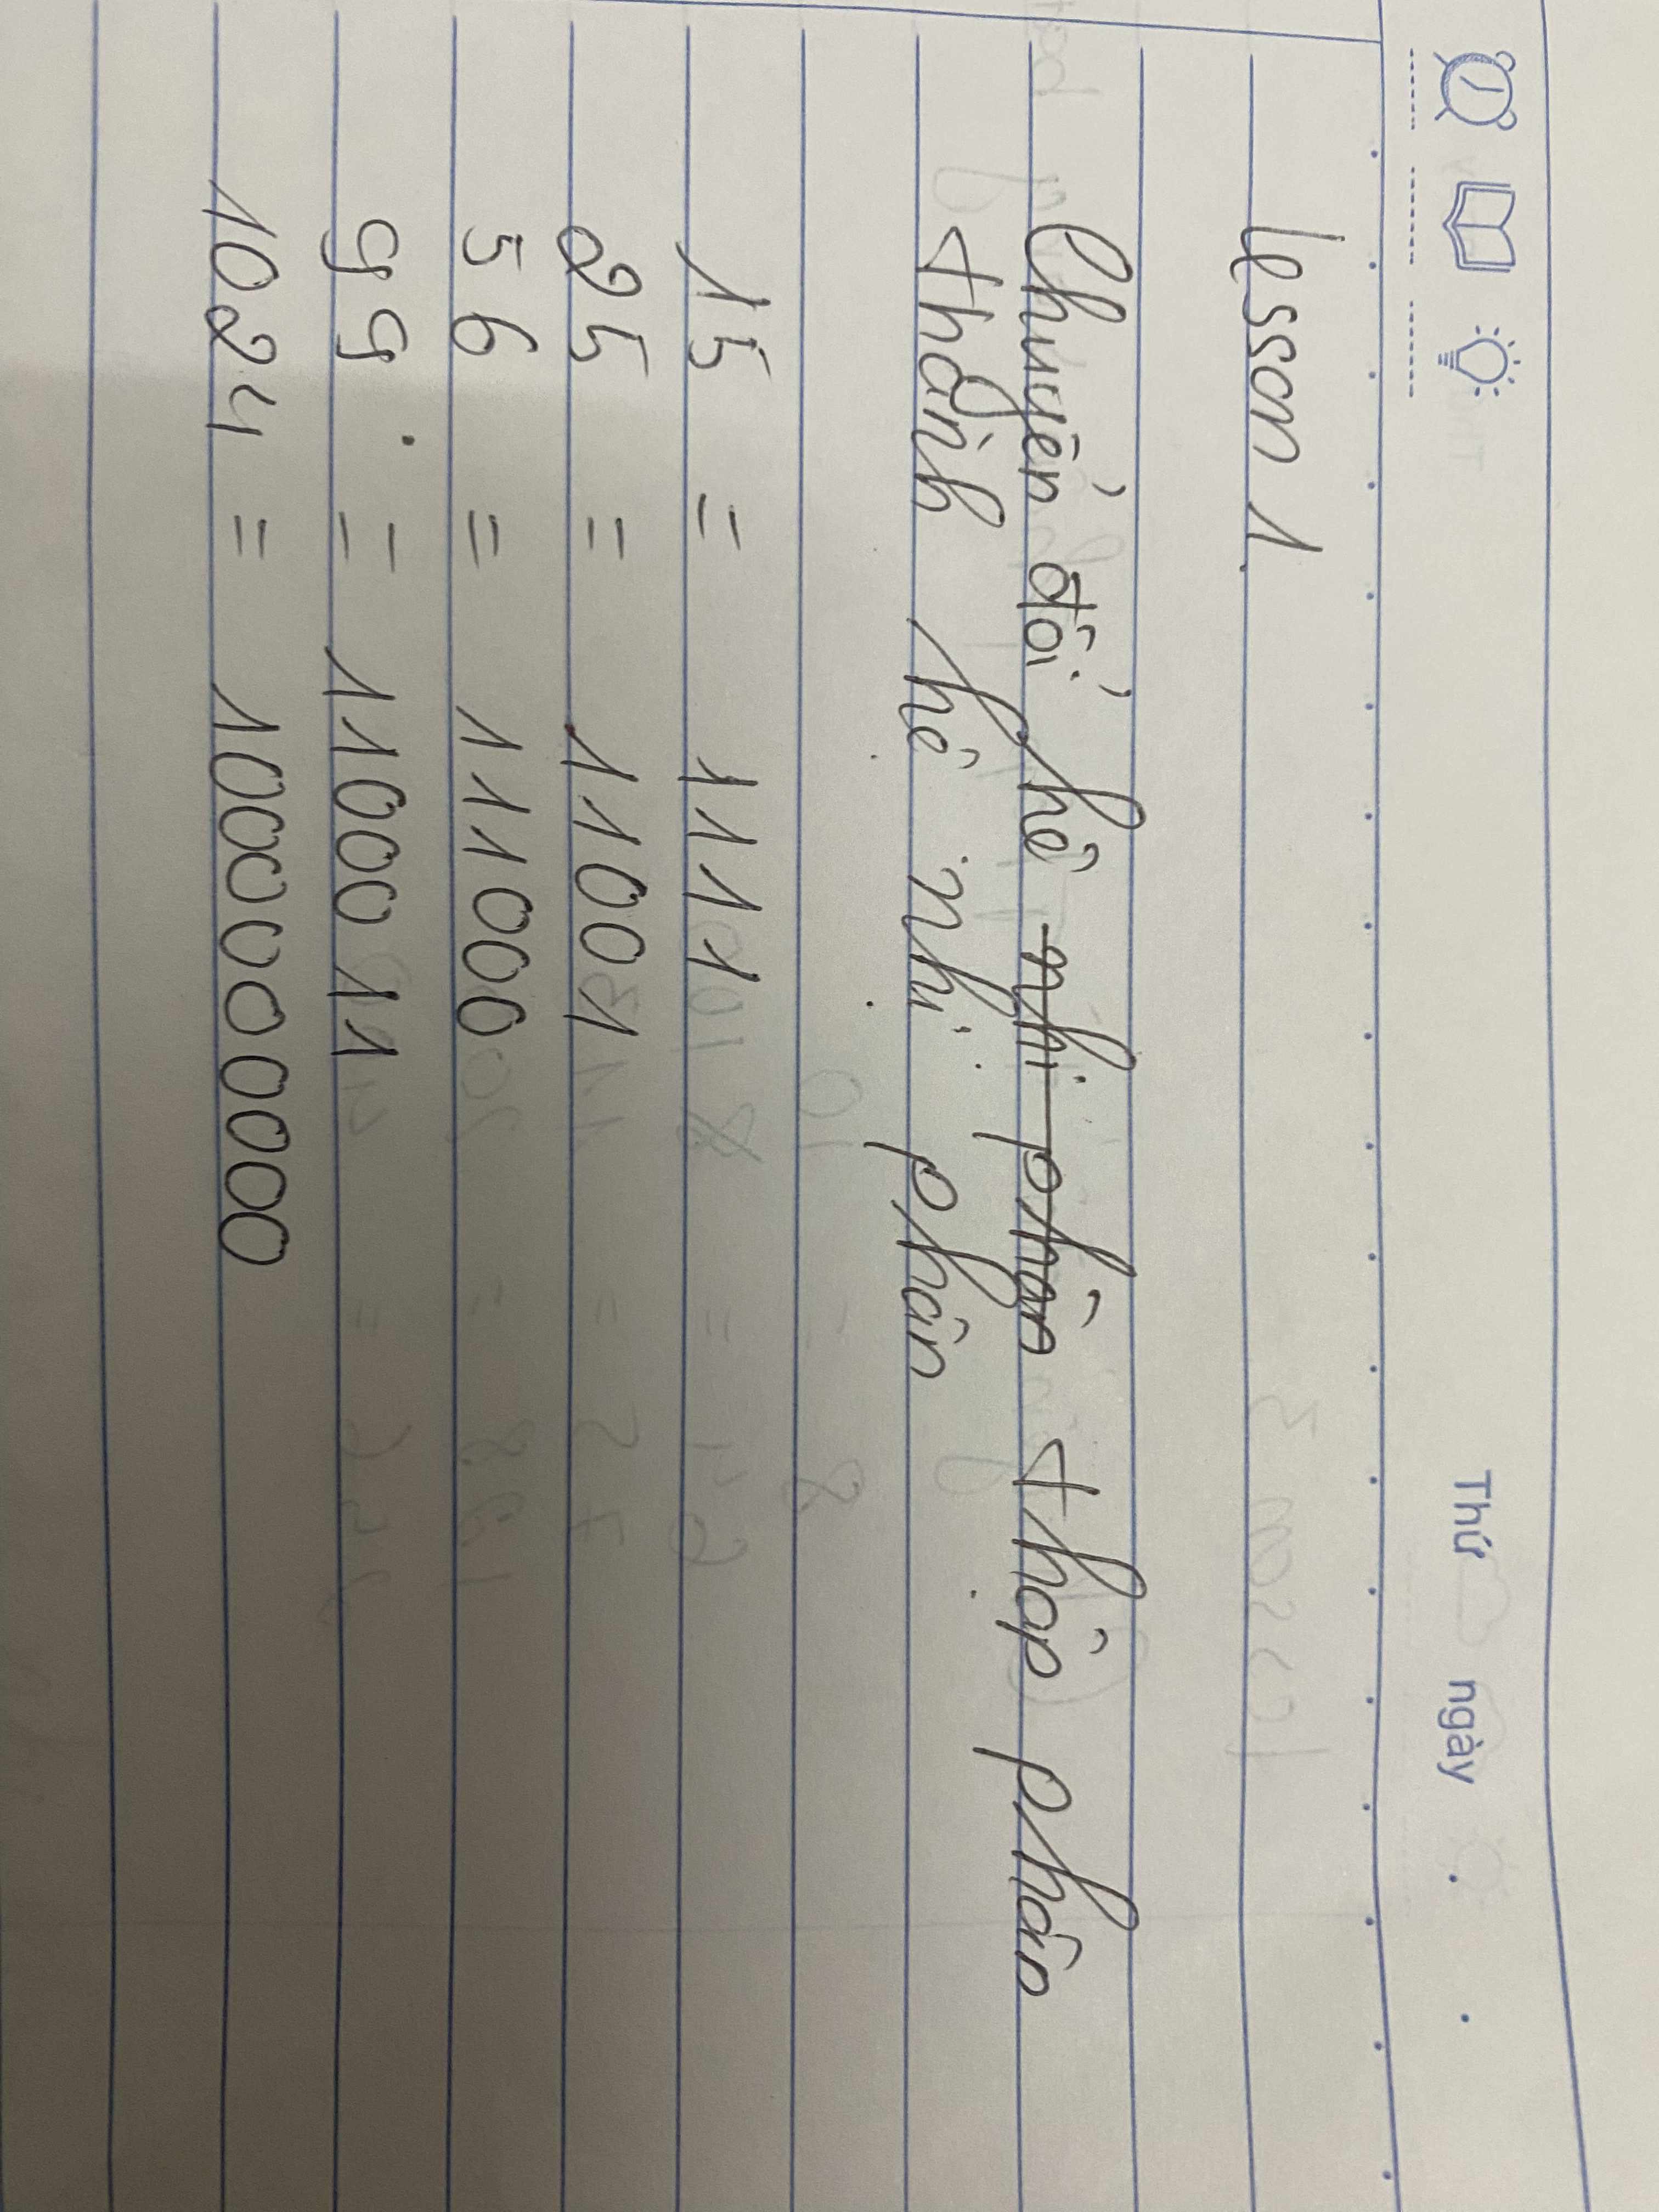 Thứ ngày
Lesson 1.
Chuyển đổi hệ nhị phân thập phân
thành hệ nhị phân
15 = 1111
25 = 11001
56 = 111000
99 = 1100011
1024 = 1000000000